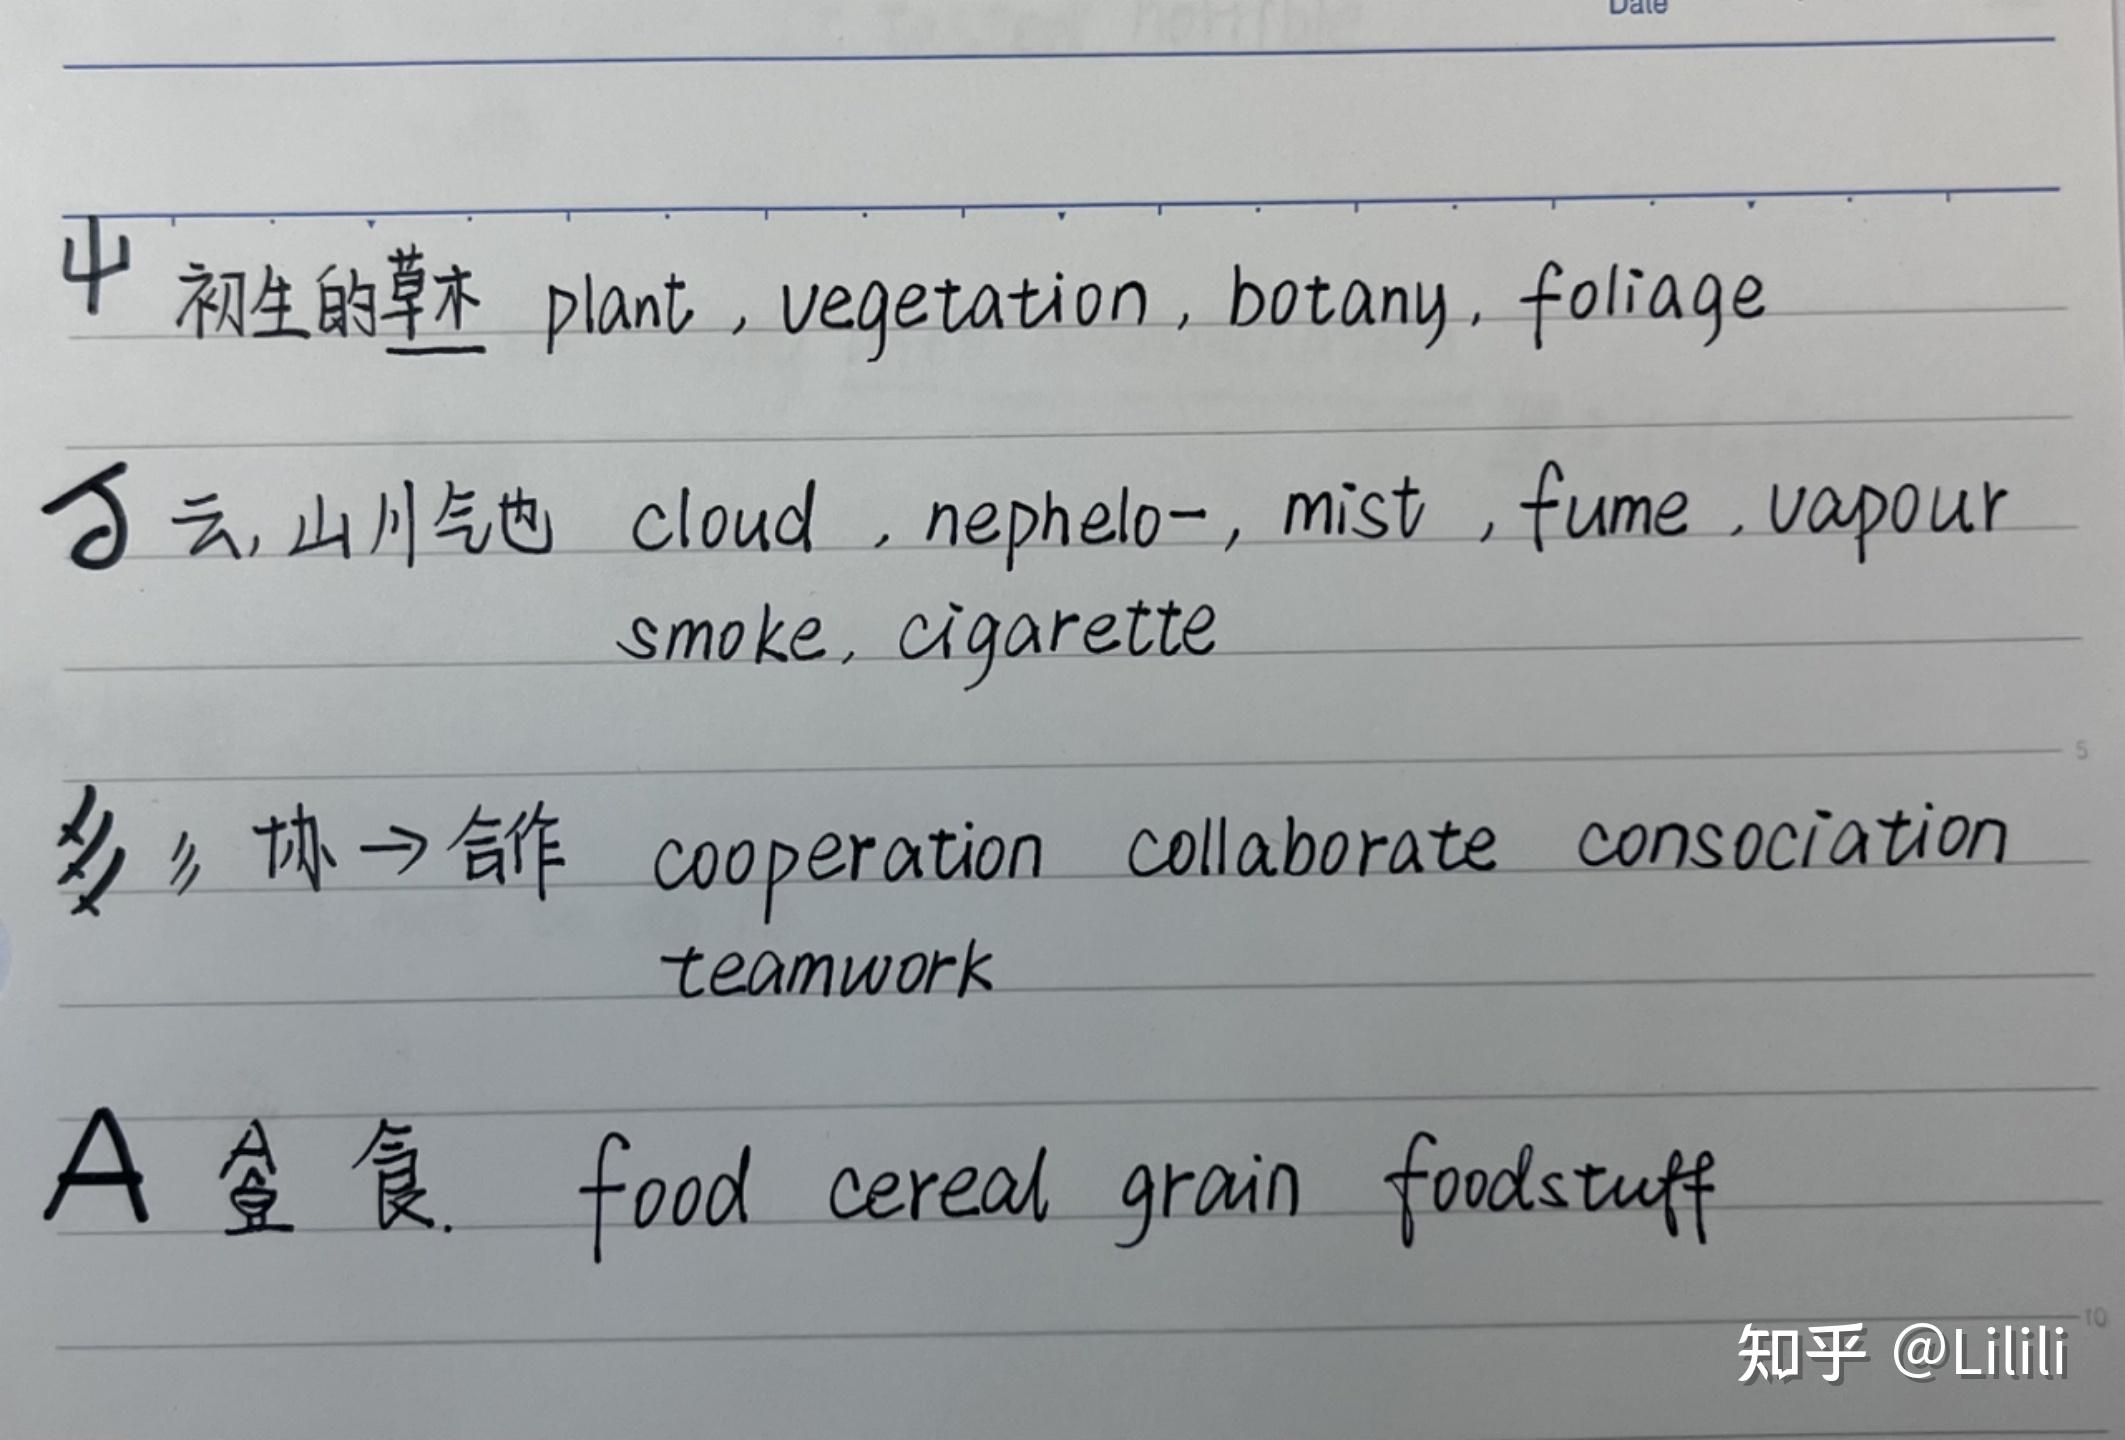 Date
屮 初生的草木 plant, vegetation, botany, foliage
云, 山川气也 cloud, nephelo-, mist, fume, vapour
smoke, cigarette
5
协→合作 cooperation collaborate consociation
teamwork
A 食. food cereal grain foodstuff
10
知乎 @Lilili